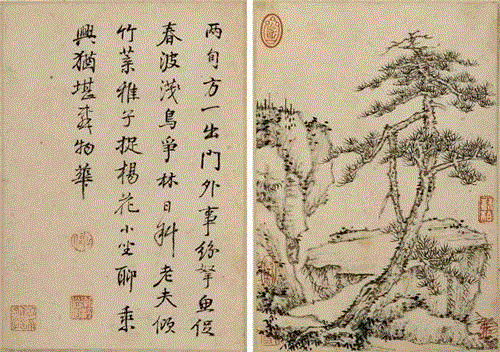 兩旬方一出門外事紛拏魚促
春波淺鳥爭林日斜老夫傾
竹葉稚子捉楊花小坐聊乘
興猶堪物華